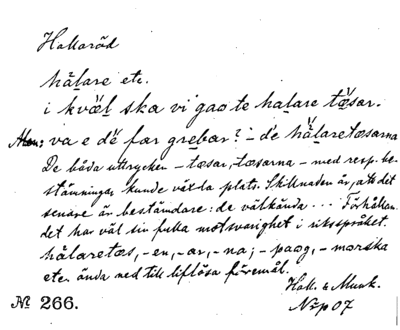 Hallaröd
hälare etc.
i kväl ska vi gao te halare täsar.
Man: va e dé fær grebar? – dé hälaretæsarna
De båda uttrycken – tæsar, -tæsarna – med resp. be-
stämningar kunde växla plats. Skillnaden är, att det
senare är bestämdare: de välkända ... Förhållan-
det har väl sin fulla motsvarighet i riksspråket.
hälaretæs, -en, -ar, -na; -paog, -morska
etc. ända ned till liflösa föremål.
Hall. & Munk.
Nrp 07
No 266.